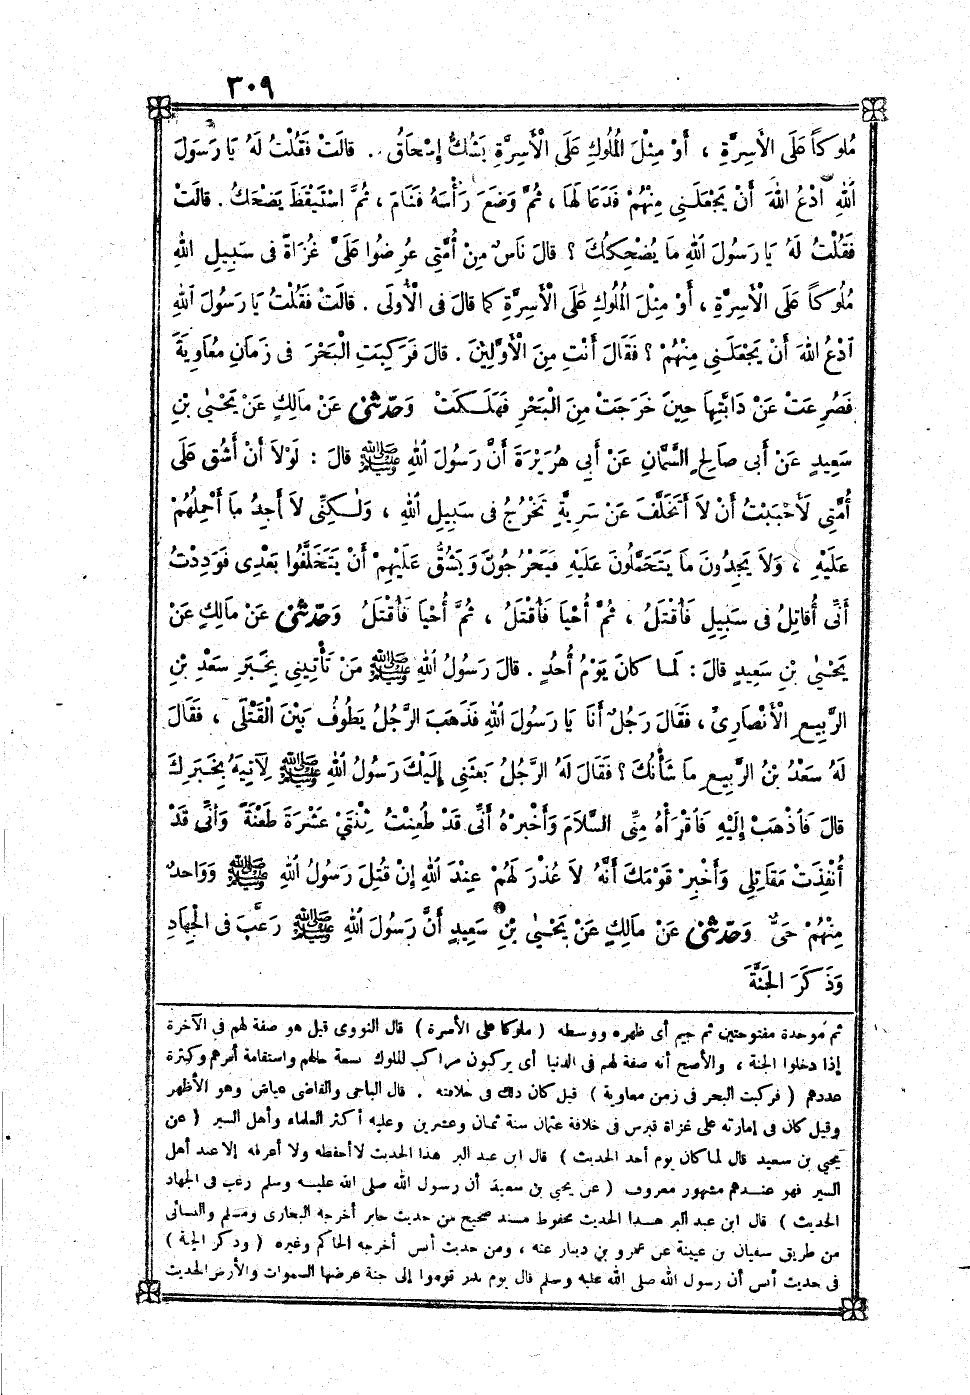 ٣٠٩
مُلُوكاً عَلَى الْأَسِرَّةِ ، أَوْ مِثْلَ الْمُلُوكِ عَلَى الْأَسِرَّةِ يَشُكُّ إِسْحَاقُ .. قالَتْ فَقُلْتُ لَهُ يَا رَسُولَ
اللهِ ادْعُ اللهَ أَنْ يَجْعَلَنِي مِنْهُمْ فَدَعَا لَهَا ، ثُمَّ وَضَعَ رَأْسَهُ فَنَامَ ، ثُمَّ اسْتَيْقَظَ يَضْحَكُ . قالَتْ
فَقُلْتُ لَهُ يَا رَسُولَ اللهِ مَا يُضْحِكُكَ ؟ قالَ نَاسٌ مِنْ أُمَّتِي عُرِضُوا عَلَىَّ غُزَاةً فى سَبِيلِ اللهِ
مُلُوكاً عَلَى الْأَسِرَّةِ ، أَوْ مِثْلَ الْمُلُوكِ عَلَى الْأَسِرَّةِ كما قالَ فى الْأُولَى . قالَتْ فَقُلْتُ يَا رَسُولَ اللهِ
ادْعُ اللهَ أَنْ يَجْعَلَنِي مِنْهُمْ ؟ فَقَالَ أَنْتِ مِنَ الْأَوَّلِيْنَ . قالَ فَرَكِبَتِ الْبَحْرَ فى زَمَانِ مُعَاوِيَةَ
فَصُرِعَتْ عَنْ دَابَّتِهَا حِينَ خَرَجَتْ مِنَ الْبَحْرِ فَهَلَكَتْ وَحَدّثَنِى عَنْ مَالِكٍ عَنْ يَحْيٰى بْنِ
سَعِيدٍ عَنْ أَبِى صَالِحٍ السَّمَّانِ عَنْ أَبِي هُرَيْرَةَ أَنَّ رَسُولَ اللهِ ﷺ قالَ : لَوْلاَ أَنْ أَشُقَّ عَلَى
أُمَّتِي لَأَحْبَبْتُ أَنْ لاَ أَتَخَلَّفَ عَنْ سَرِيَّةٍ تَخْرُجُ فى سَبِيلِ اللهِ ، وَلٰكِنِّى لاَ أَجِدُ مَا أَحْمِلُهُمْ
عَلَيْهِ ، وَلاَ يَجِدُونَ مَا يَتَحَمَّلُونَ عَلَيْهِ فَيَخْرُجُونَ وَيَشُقُّ عَلَيْهِمْ أَنْ يَتَخَلَّفُوا بَعْدِى فَوَدِدْتُ
أَنِّى أُقَاتِلُ فى سَبِيلِ فَأُقْتَلُ ، ثُمَّ أُحْيَا فَأُقْتَلُ ، ثُمَّ أُحْيَا فَأُقْتَلُ وَحَدّثَنِى عَنْ مَالِكٍ عَنْ
يَحْيٰى بْنِ سَعِيدٍ قالَ : لَمـا كانَ يَوْمُ أُحُدٍ . قالَ رَسُولُ اللهِ ﷺ مَنْ يَأْتِينِي بِخَبَرِ سَعْدِ بْنِ
الرَّبِيعِ الْأَنْصَارِىِّ ، فَقَالَ رَجُلٌ أَنَا يَا رَسُولَ اللهِ فَذَهَبَ الرَّجُلُ يَطُوفُ بَيْنَ الْقَتْلَى ، فَقَالَ
لَهُ سَعْدُ بْنُ الرَّبِيعِ مَا شَأْنُكَ ؟ فَقَالَ لَهُ الرَّجُلُ بَعَثَنِى إِلَيْكَ رَسُولُ اللهِ ﷺ لِآتِيَهُ بِخَبَرِكَ
قالَ فَاذْهَبْ إِلَيْهِ فَاقْرَأْهُ مِنِّى السَّلاَمَ وَأَخْبِرْهُ أَنِّى قَدْ طُعِنْتُ ثِنْتَيْ عَشْرَةَ طَعْنَةً وَأَنِّى قَدْ
أُنْفِذَتْ مَقَاتِلِي وَأَخْبِرْ قَوْمَكَ أَنَّهُ لاَ عُذْرَ لَهُمْ عِنْدَ اللهِ إِنْ قُتِلَ رَسُولُ اللهِ ﷺ وَوَاحدٌ
مِنْهُمْ حَيٌّ وَحَدّثَنِى عَنْ مَالِكٍ عَنْ يَحْيٰى بْنِ سَعِيدٍ أَنَّ رَسُولَ اللهِ ﷺ رَغَّبَ فى الْجِهَادِ
وَذَكَرَ الجَنَّةَ
ثم موحدة مفتوحتين ثم جيم أى ظهره ووسطه ( ملوكا على الأسرة ) قال النووى قيل هو صفة لهم فى الآخرة
إذا دخلوا الجنة ، والأصح أنه صفة لهم فى الدنيا أى يركبون مراكب للملوك لسعة حالهم واستقامة أمرهم وكثرة
عددهم ( فركبت البحر فى زمن معاوية ) قيل كان ذلك فى خلافته . قال الباجى والقاضى عياض وهو الأظهر
وقيل كان فى إمارته على غزاة قبرس فى خلافة عثمان سنة ثمان وعشرين وعليه أكثر العلماء وأهل السير ( عن
يحيى بن سعيد قال لما كان يوم أحد الحديث ) قال ابن عبد البر هذا الحديث لا أحفظه ولا أعرفه إلا عند أهل
السير فهو عنـدهم مشهور معروف ( عن يحيى بن سعيد أن رسول الله صلى الله عليـه وسلم رغب فى الجهاد
الحديث ) قال ابن عبد البر هـذا الحديث محفوظ مسند صحيح من حديث جابر أخرجه البخارى ومسلم والنسائى
من طريق سفيان بن عيينة عن عمرو بن دينار عنه ، ومن حديث أنس أخرجه الحاكم وغيره ( وذكر الجنة )
فى حديث أنس أن رسول الله صلى الله عليه وسلم قال يوم بدر قوموا إلى جنة عرضها السموات والأرض الحديث